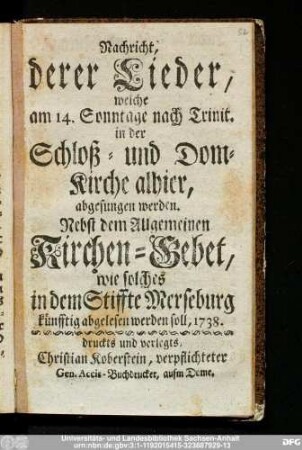 Nachricht,
derer Lieder,
welche
am 14. Sonntage nach Trinit.
in der
Schloß- und Dom-
Kirche alhier,
abgesungen werden.
Nebst dem Allgemeinen
Kirchen-Gebet,
wie solches
in dem Stiffte Merseburg
künfftig abgelesen werden soll, 1738.
druckts und verlegts,
Christian Koberstein, verpflichteter
Gen. Accis-Buchdrucker, aufm Dome.
Universitäts- und Landesbibliothek Sachsen-Anhalt
urn:nbn:de:gbv:3:1-1192015415-323887929-13
DFG